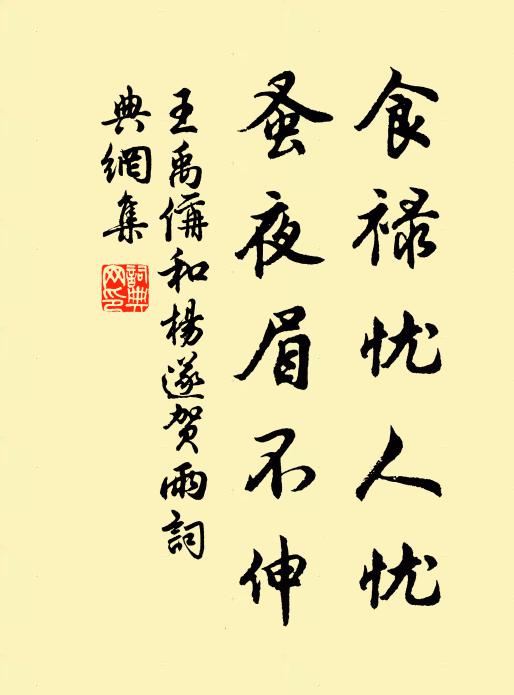 食禄忧人忧
蚤夜眉不伸
王禹偁和杨遂贺雨詞
典網集
詞典网印